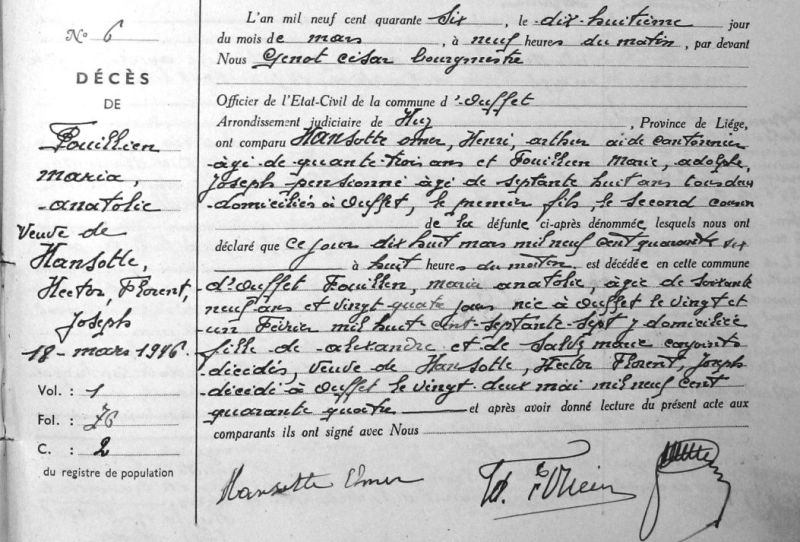 N° 6
DÉCÈS
DE
Fouillien
maria,
anatolie
Veuve de
Hansotte,
Hector, Florent,
Joseph
18-mars 1946.
Vol. : 1
Fol. : 76
C. : 2
du registre de population
L'an mil neuf cent quarante six, le dix-huitième jour
du mois de mars, à neuf heures du matin, par devant
Nous Genot césar bourgmestre
Officier de l'Etat-Civil de la commune d'Ouffet
Arrondissement judiciaire de Huy, Province de Liége,
ont comparu Hansotte omer, Henri, arthur aide cantonnier
âgé de quante-trois ans et Fouillien Marie, adolphe,
Joseph pensionné âgé de septante huit ans tous deux
domiciliés à Ouffet, le premier fils, le second cousin
de la défunte ci-après dénommée, lesquels nous ont
déclaré que ce jour dix huit mars mil neuf cent quarante six
à huit heures du matin, est décédée en cette commune
d'Ouffet Fouillien, maria anatolie, âgée de soixante
neuf ans et vingt-quatre jours née à Ouffet le vingt et
un Février mil huit cent-septante-sept y domiciliée
fille de alexandre et de marie conjoints
décédés, veuve de Hansotte, Hector Florent, Joseph
décédé à Ouffet le vingt deux mai mil neuf cent
quarante quatre et après avoir donné lecture du présent acte aux
comparants ils ont signé avec Nous
Hansotte Omer